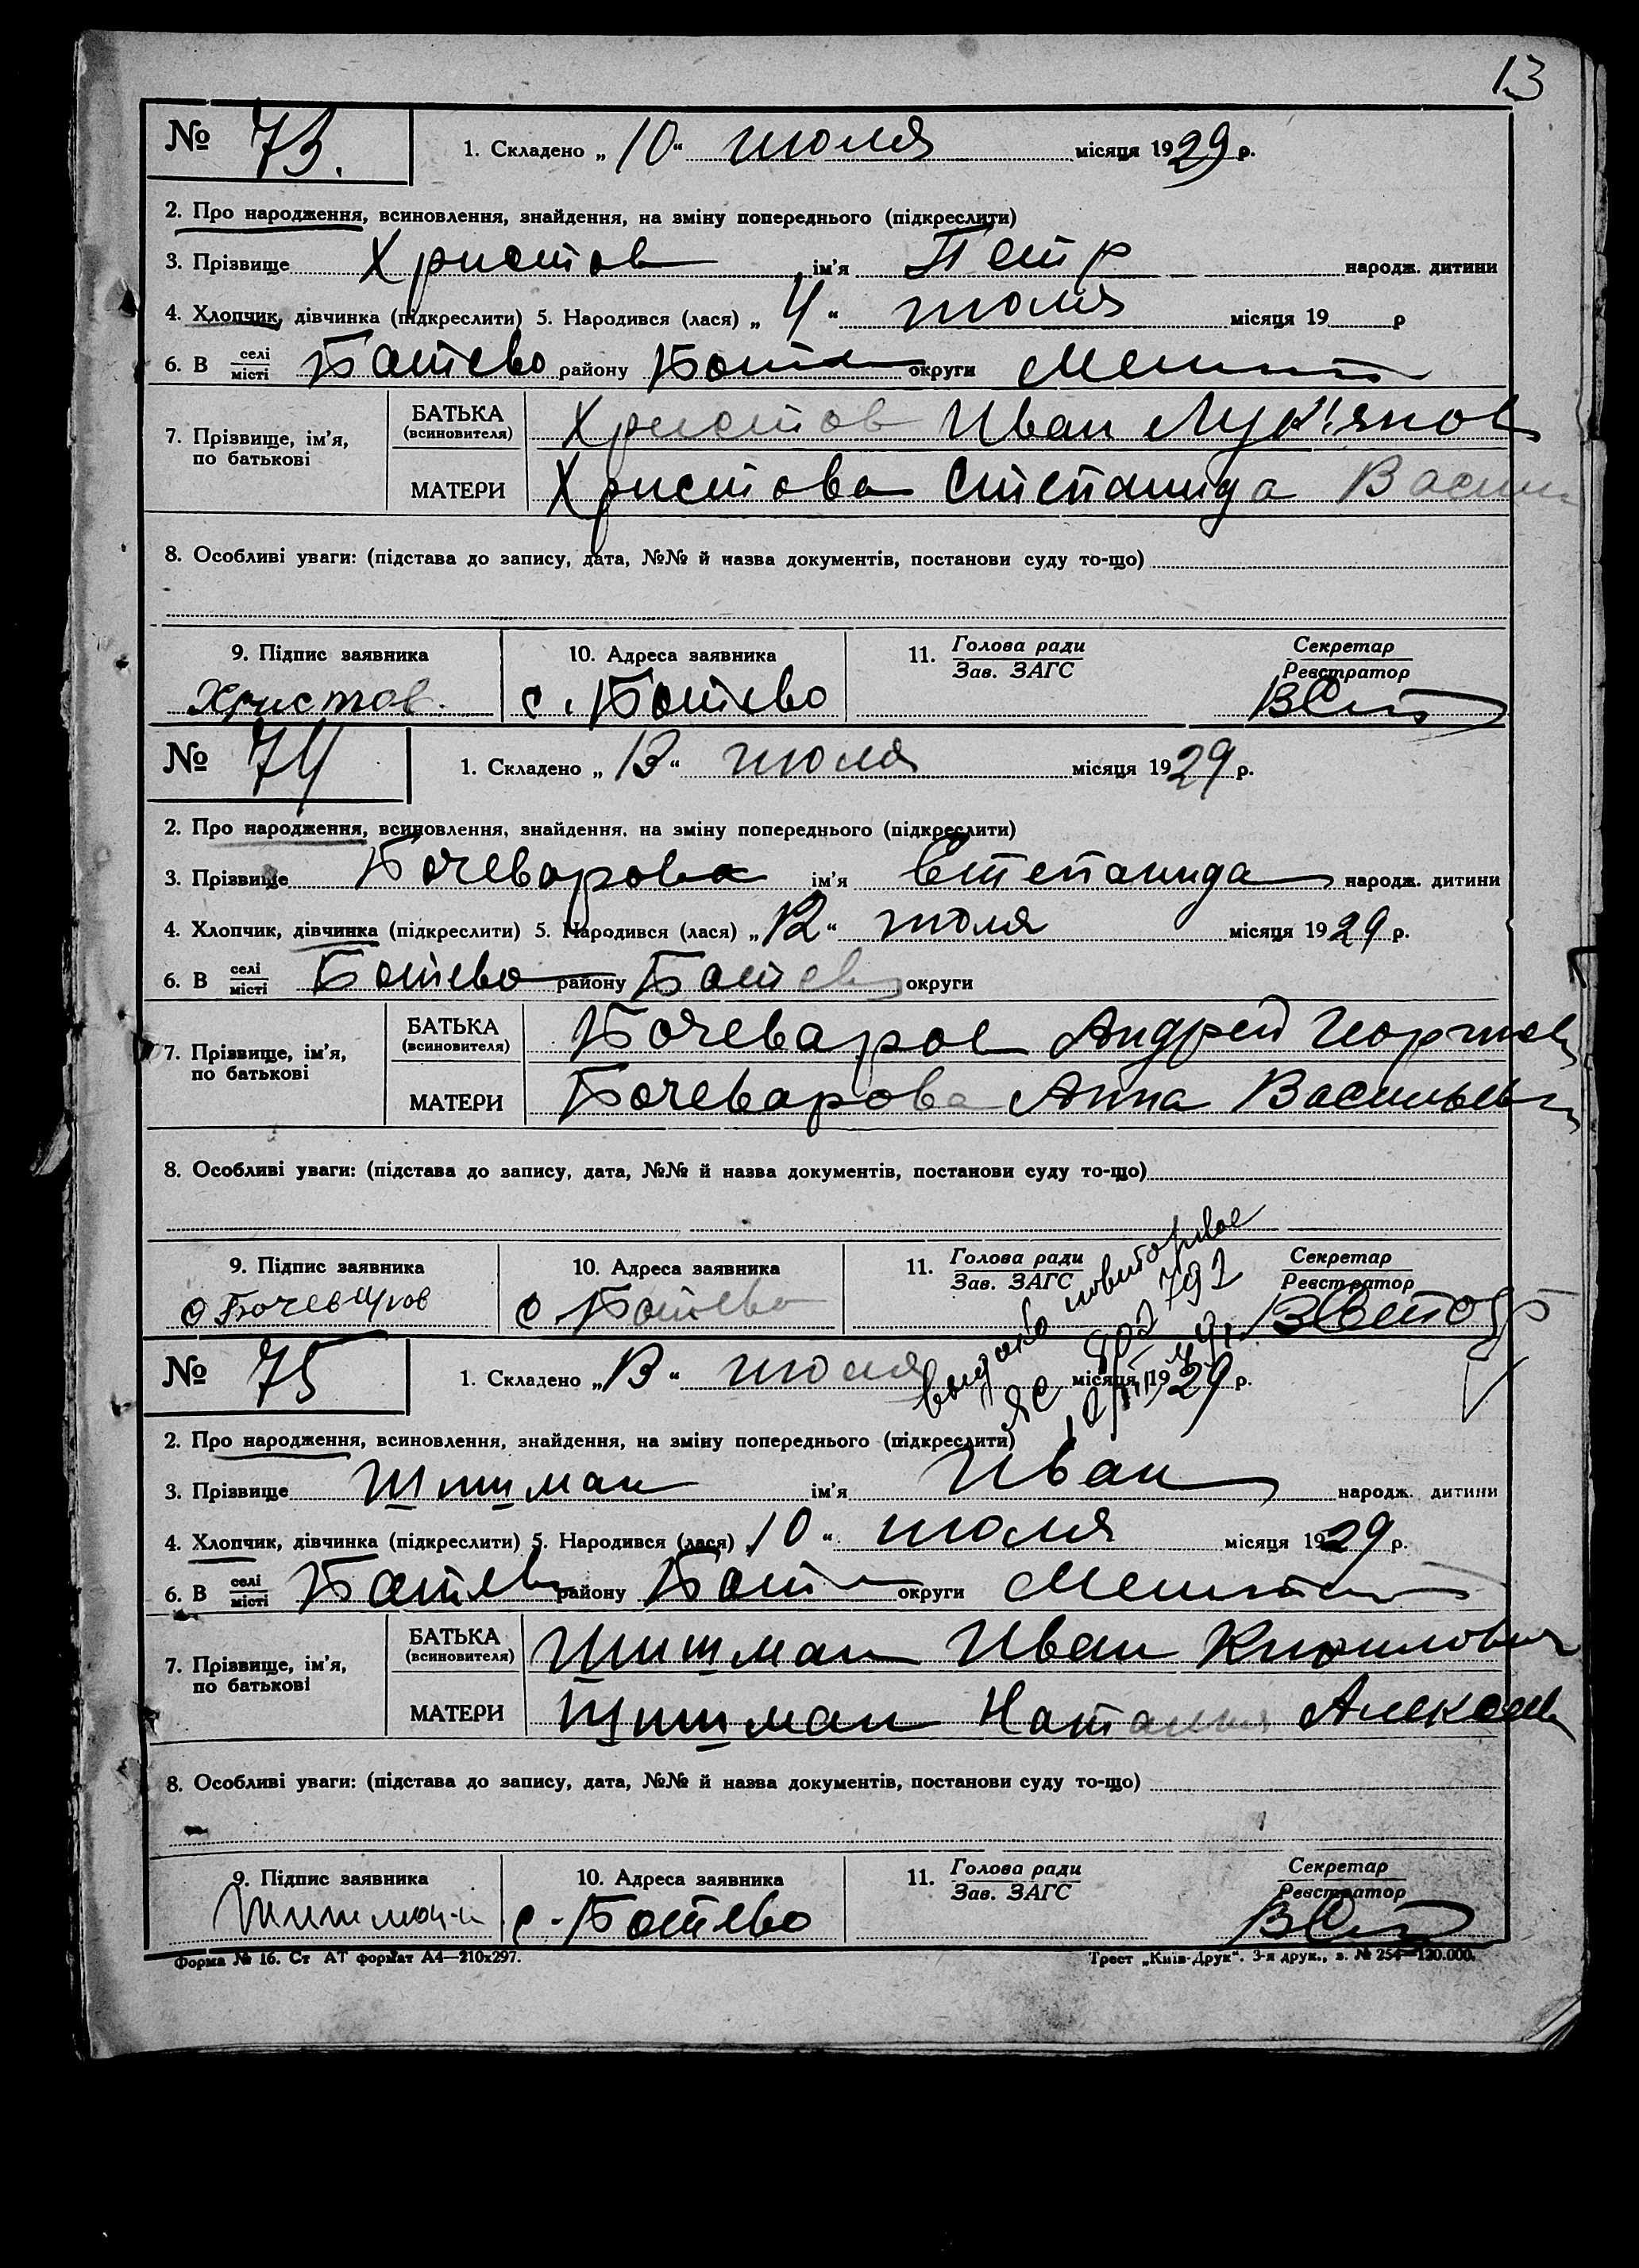 13
№ 73. 1. Складено „10“ июля місяця 1929 р.
2. Про народження, всиновлення, знайдення, на зміну попереднього (підкреслити)
3. Прізвище Христов ім'я Петр народж. дитини
4. Хлопчик, дівчинка (підкреслити) 5. Народився (лася) „4“ июля місяця 19 р
6. В селі місті Ботево району Бот округи Мелит
7. Прізвище, ім'я, по батькові БАТЬКА (всиновителя) Христов Иван Лук'янов
МАТЕРИ Христова Степанида Васил
8. Особливі уваги: (підстава до запису, дата, №№ й назва документів, постанови суду то-що)
9. Підпис заявника 10. Адреса заявника 11. Голова ради Зав. ЗАГС Секретар Реєстратор
Христов. с. Ботево
№ 74 1. Складено „13“ июля місяця 1929 р.
2. Про народження, всиновлення, знайдення, на зміну попереднього (підкреслити)
3. Прізвище Бочеварова ім'я Степанида народж. дитини
4. Хлопчик, дівчинка (підкреслити) 5. Народився (лася) „12“ июля місяця 1929 р.
6. В селі місті Ботево району Ботев округи
7. Прізвище, ім'я, по батькові БАТЬКА (всиновителя) Бочеваров Андрей Георгиев
МАТЕРИ Бочеварова Анна Васильев
8. Особливі уваги: (підстава до запису, дата, №№ й назва документів, постанови суду то-що)
9. Підпис заявника 10. Адреса заявника 11. Голова ради Зав. ЗАГС Секретар Реєстратор
с Ботево
выдано повторное
№ 75 1. Складено „13“ июля місяця 1929 р.
2. Про народження, всиновлення, знайдення, на зміну попереднього (підкреслити)
3. Прізвище Шишман ім'я Иван народж. дитини
4. Хлопчик, дівчинка (підкреслити) 5. Народився (лася) 10“ июля місяця 1929 р.
6. В селі місті Ботев району Бот округи Мелит
7. Прізвище, ім'я, по батькові БАТЬКА (всиновителя) Шишман Иван Кирилович
МАТЕРИ Шишман Наталия Алексеев
8. Особливі уваги: (підстава до запису, дата, №№ й назва документів, постанови суду то-що)
9. Підпис заявника 10. Адреса заявника 11. Голова ради Зав. ЗАГС Секретар Реєстратор
Шишман с. Ботево
Форма № 16. Ст АТ формат А4—210х297. Трест „Київ-Друк“. 3-я друк., з. № 254—120.000.